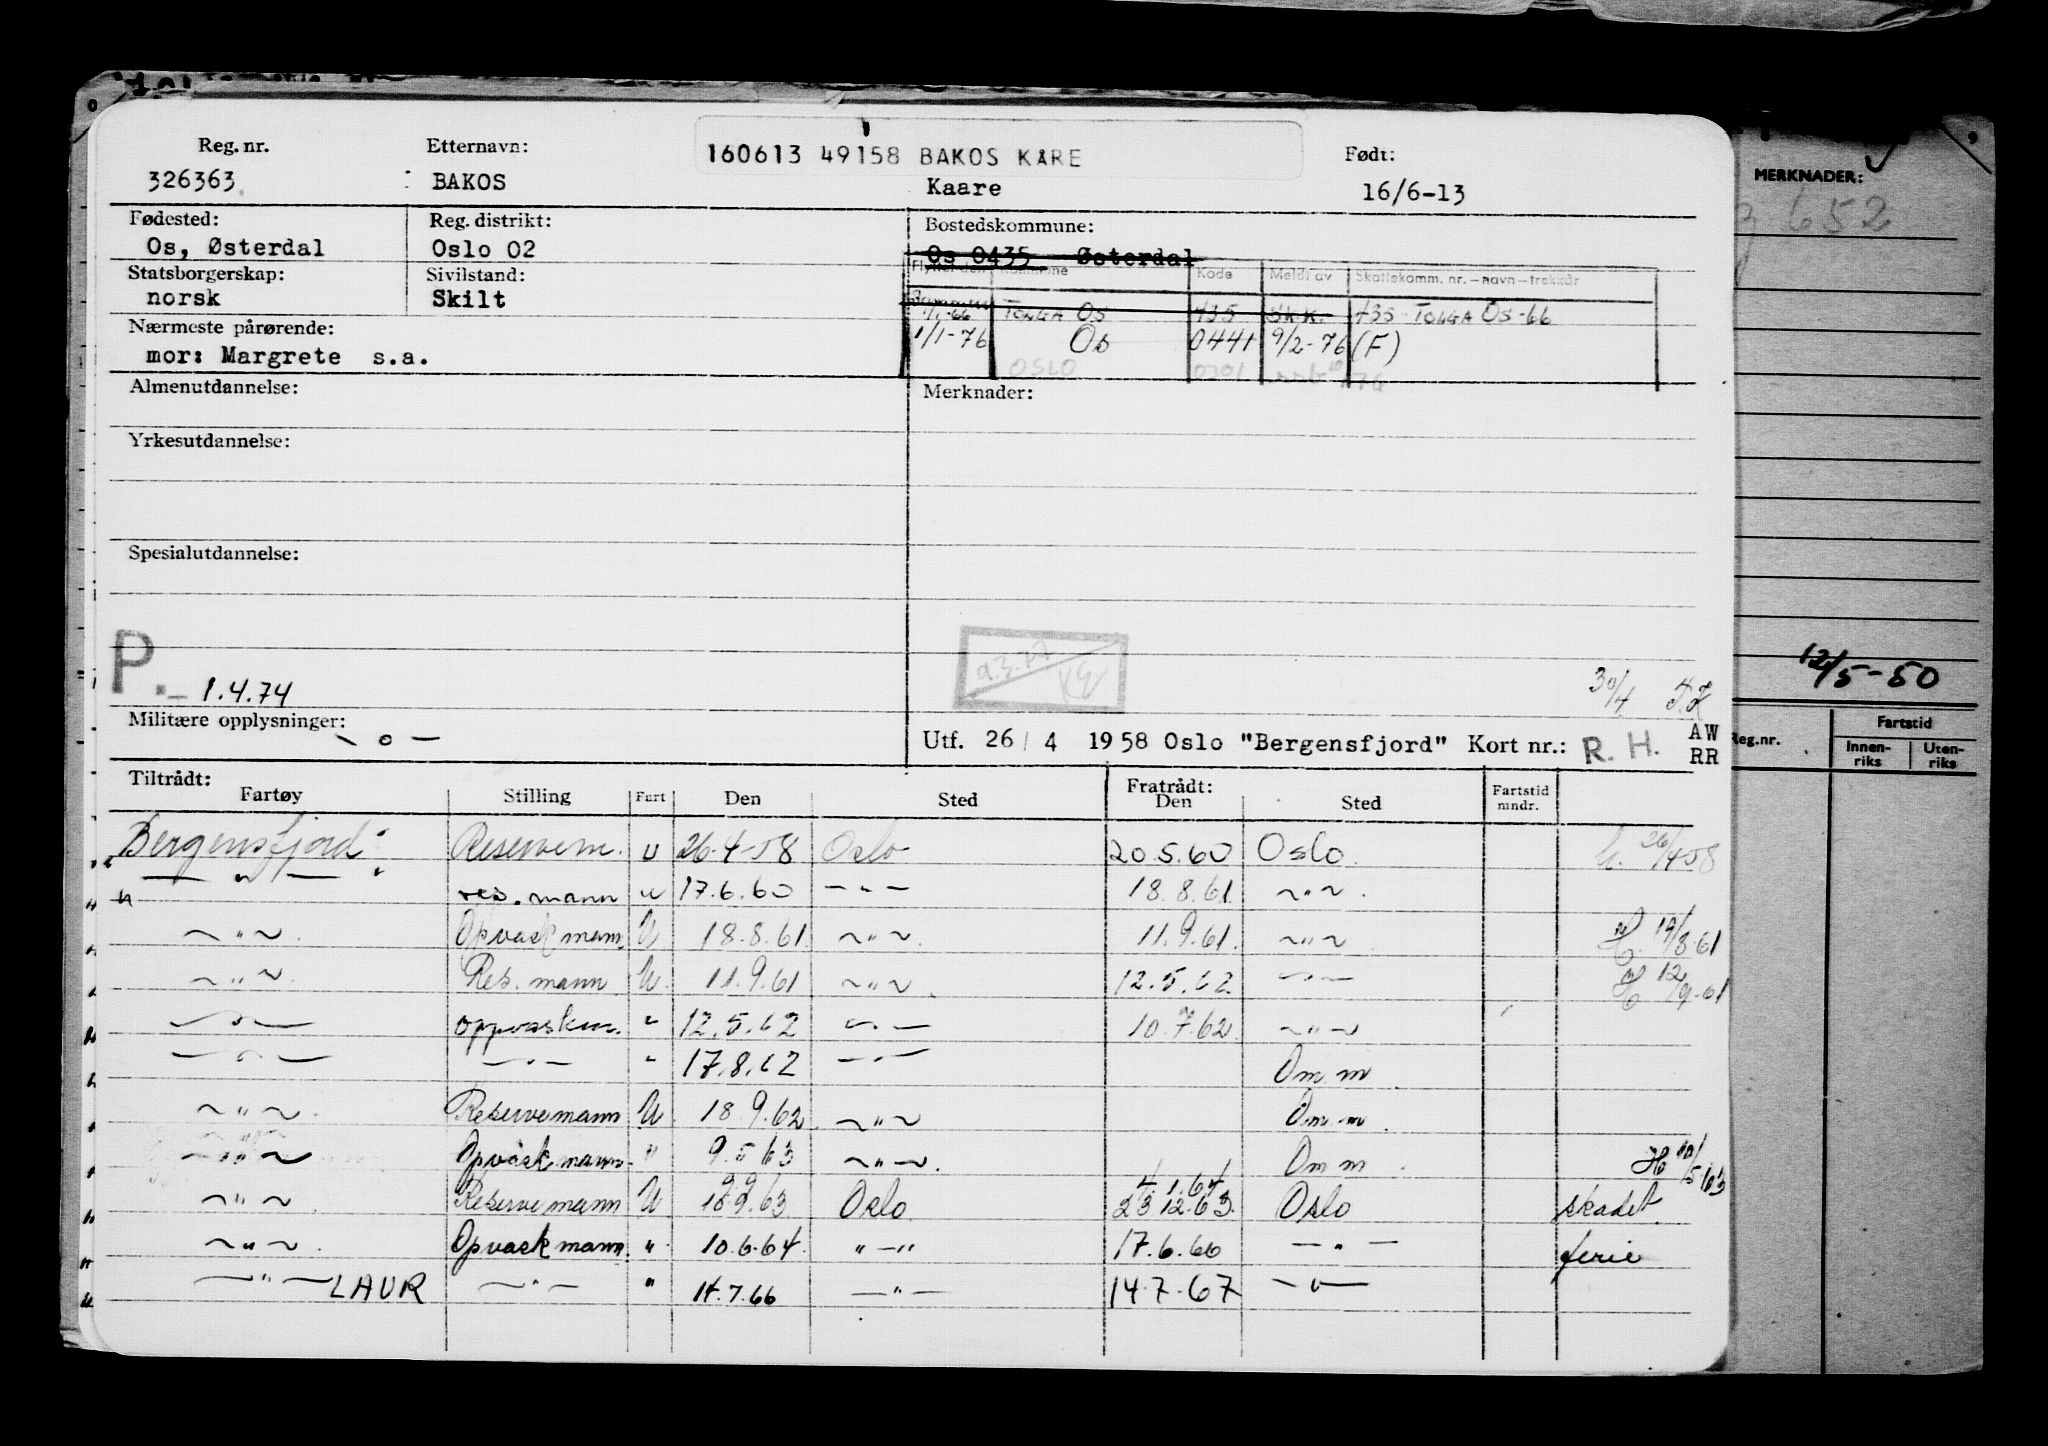 160613 49158 BAKOS KÅRE
Reg. nr. Etternavn: Født:
326363 BAKOS Kaare 16/6-13
MERKNADER:
652
Fødested: Reg. distrikt: Bostedskommune:
Os, Østerdal Oslo 02 Os 0435 Østerdal
Statsborgerskap: Sivilstand:
Kommune Kode Meldt av Skattekomm. nr. – navn – trekkår
norsk Skilt
1/1-66 TOLGA OS 435 SKK. 435 TOLGA OS-66
Nærmeste pårørende:
1/1-76 Os 0441 9/2-76 (F)
mor: Margrete s.a.
OSLO 0301
Almenutdannelse: Merknader:
Yrkesutdannelse:
Spesialutdannelse:
P. - 1.4.74
30/4
12/5-50
Militære opplysninger: - o -
Utf. 26/4 1958 Oslo "Bergensfjord" Kort nr.: R. H. AW
RR
Reg.nr. Fartstid
Innen-riks Uten-riks
Tiltrådt: Fratrådt:
Fartøy Stilling Fart Den Sted Den Sted Fartstid mndr.
Bergensfjord Reservem. U 26-4-58 Oslo 20.5.60 Oslo 26/4-58
— " — res. mann u 17.6.60 — " — 18.8.61 ~ " ~
~ " ~ Opvaskmann U 18.8.61 ~ " ~ 11.9.61. ~ " ~ H. 19/8-61
~ " ~ Res. mann U 11.9.61 ~ " ~ 12.5.62 — " — H 12/9-61
— " — oppvaskm. " 12.5.62 — " — 10.7.62 ~ " ~
— " — — " — " 17.8.62 — " — Om m
~ " ~ Reservemann U 18.9.62 ~ " ~ Om m
~ " ~ Opvaskmann " 9.5.63 ~ " ~ Om m H 10/5 63
9.9 4.1.64
~ " ~ Reservemann U 18.9.63 Oslo 23.12.63. Oslo skadet
~ " ~ Opvaskmann " 10.6.64. " — " 17.6.66 — " — ferie
— " — LAUR — " — " 14.7.66 — " — 14.7.67 — " —